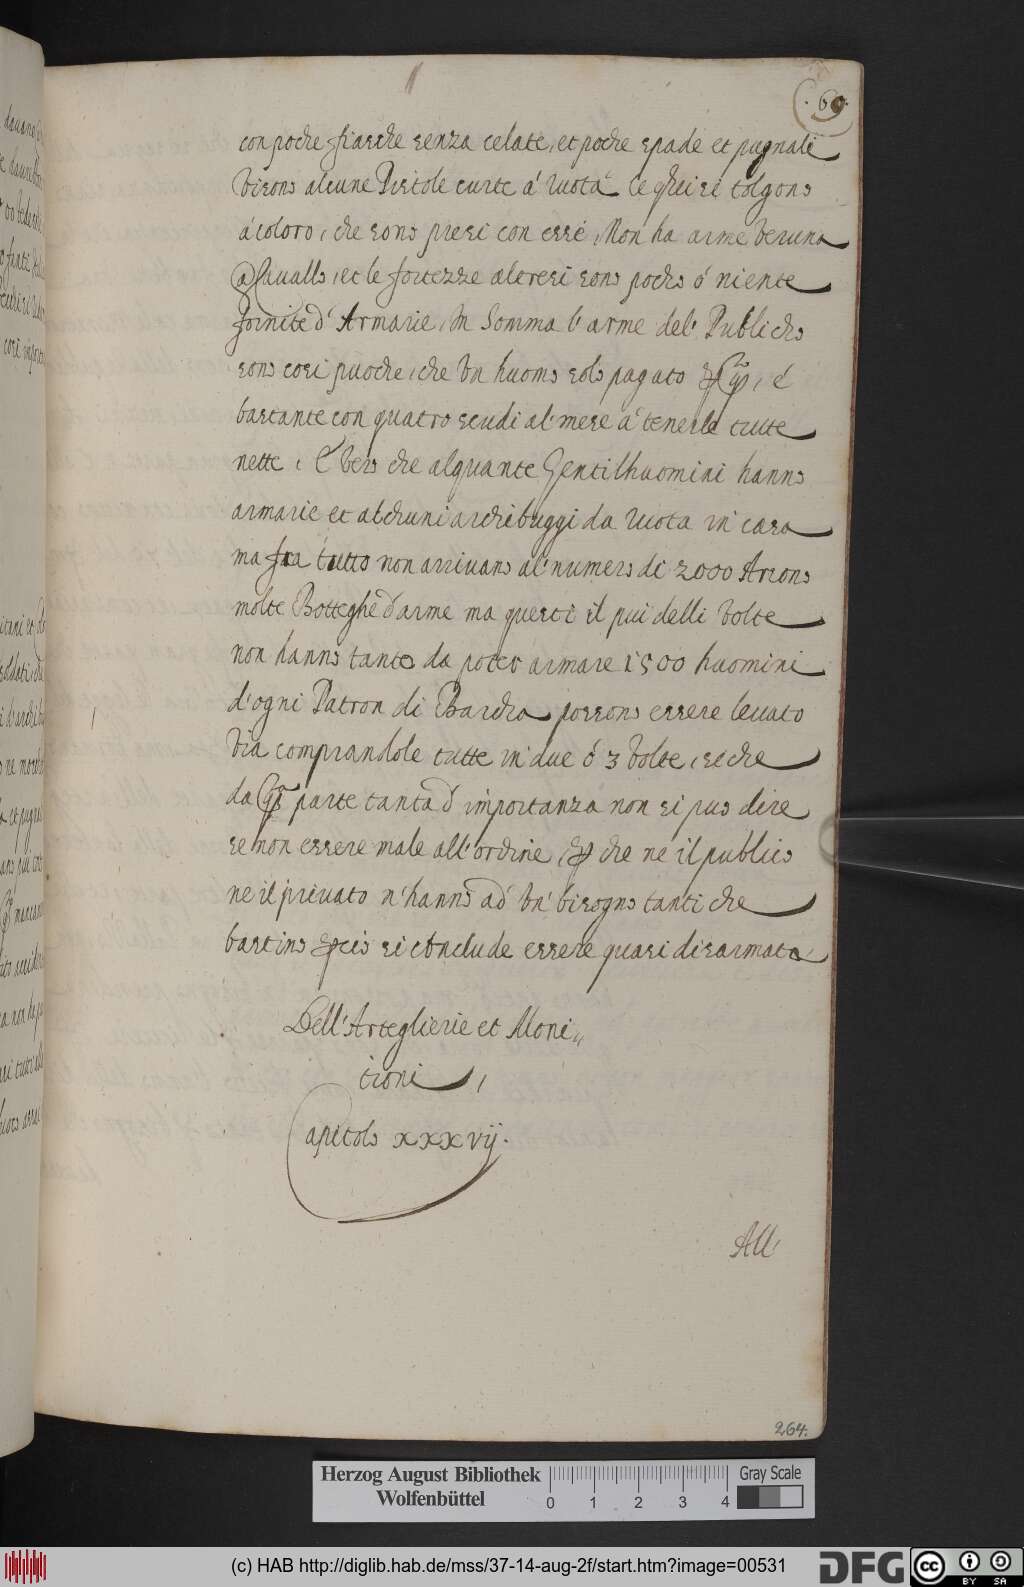 69.
con poche fiasche senza celate, et poche spade et pugnali
Vi sono alcune Pistole curte á Ruota le q͂li si tolgono
á coloro, che sono presi con esse, Non ha arme veruna
Cavallo, et le fortezze altresi sono poche ó niente
fornite d'Armarie, In Somma l'arme del' Publicho
sono cosi puoche, che Vn huomo solo pagato é
bastante con quatro scudi al' mese á tenerle tutte
nette, É Vero che alquante Gentilhuomini hanno
armarie et alchuni archibuggi da Ruota in' casa
ma fra tutto non arrivano al' numero di 2000
molte Botteghe d'arme ma questi il piu delli Volte
non hanno tanto da poter armare 1500 huomini
d'ogni Patron di Barcha possono essere levato
Via comprandole tutte in' due ó 3 Volte, si che
da parte tanta d' importanza non si puo dire
se non essere male all'ordine, che ne il publico
ne il privato n'hanno ad' Vn' bisogno tanti che
bastino si conclude essere quasi disarmata
Dell'Arteglierie et Moni
tioni,
Capitolo xxxvij.
All'
264.
Herzog August Bibliothek
Wolfenbüttel
0 1 2 3 4
Gray Scale
(c) HAB http://diglib.hab.de/mss/37-14-aug-2f/start.htm?image=00531
DFG
cc BY SA